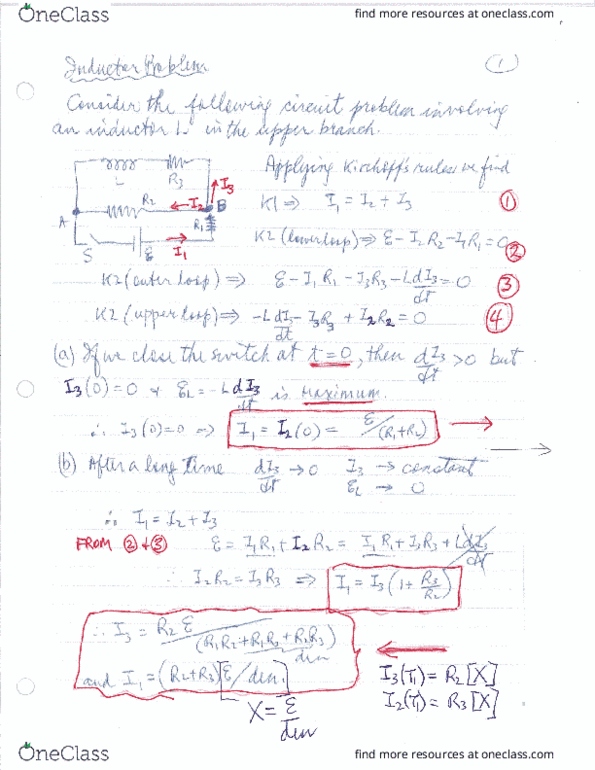 OneClass
find more resources at oneclass.com
Inductor Problem
1
Consider the following circuit problem involving
an inductor L in the upper branch.
L R3 I3
A R2 I2 B
R1
S ε I1
Applying Kirchoff's rules we find
K1 ⇒ I1 = I2 + I3 ①
K2 (lower loop) ⇒ ε - I2 R2 - I1 R1 = 0 ②
K2 (outer loop) ⇒ ε - I1 R1 - I3 R3 - L dI3/dt = 0 ③
K2 (upper loop) ⇒ -L dI3/dt - I3 R3 + I2 R2 = 0 ④
(a) If we close the switch at t = 0, then dI3/dt > 0 but
I3(0) = 0 & εL = -L dI3/dt is maximum.
∴ I3(0) = 0 ⇒ I1 = I2(0) = ε/(R1+R2)
(b) After a long time dI3/dt → 0 I3 → constant
εL → 0
∴ I1 = I2 + I3
FROM ② + ③ ε = I1R1 + I2R2 = I1R1 + I3R3 + L dI3/dt
∴ I2R2 = I3R3 ⇒ I1 = I3 (1 + R3/R2)
∴ I3 = R2 ε/(R1R2 + R1R3 + R2R3)
den
and I1 = (R2+R3) [ε/den.]
X = ε/den
I3(T1) = R2 [X]
I2(T1) = R3 [X]
OneClass
find more resources at oneclass.com